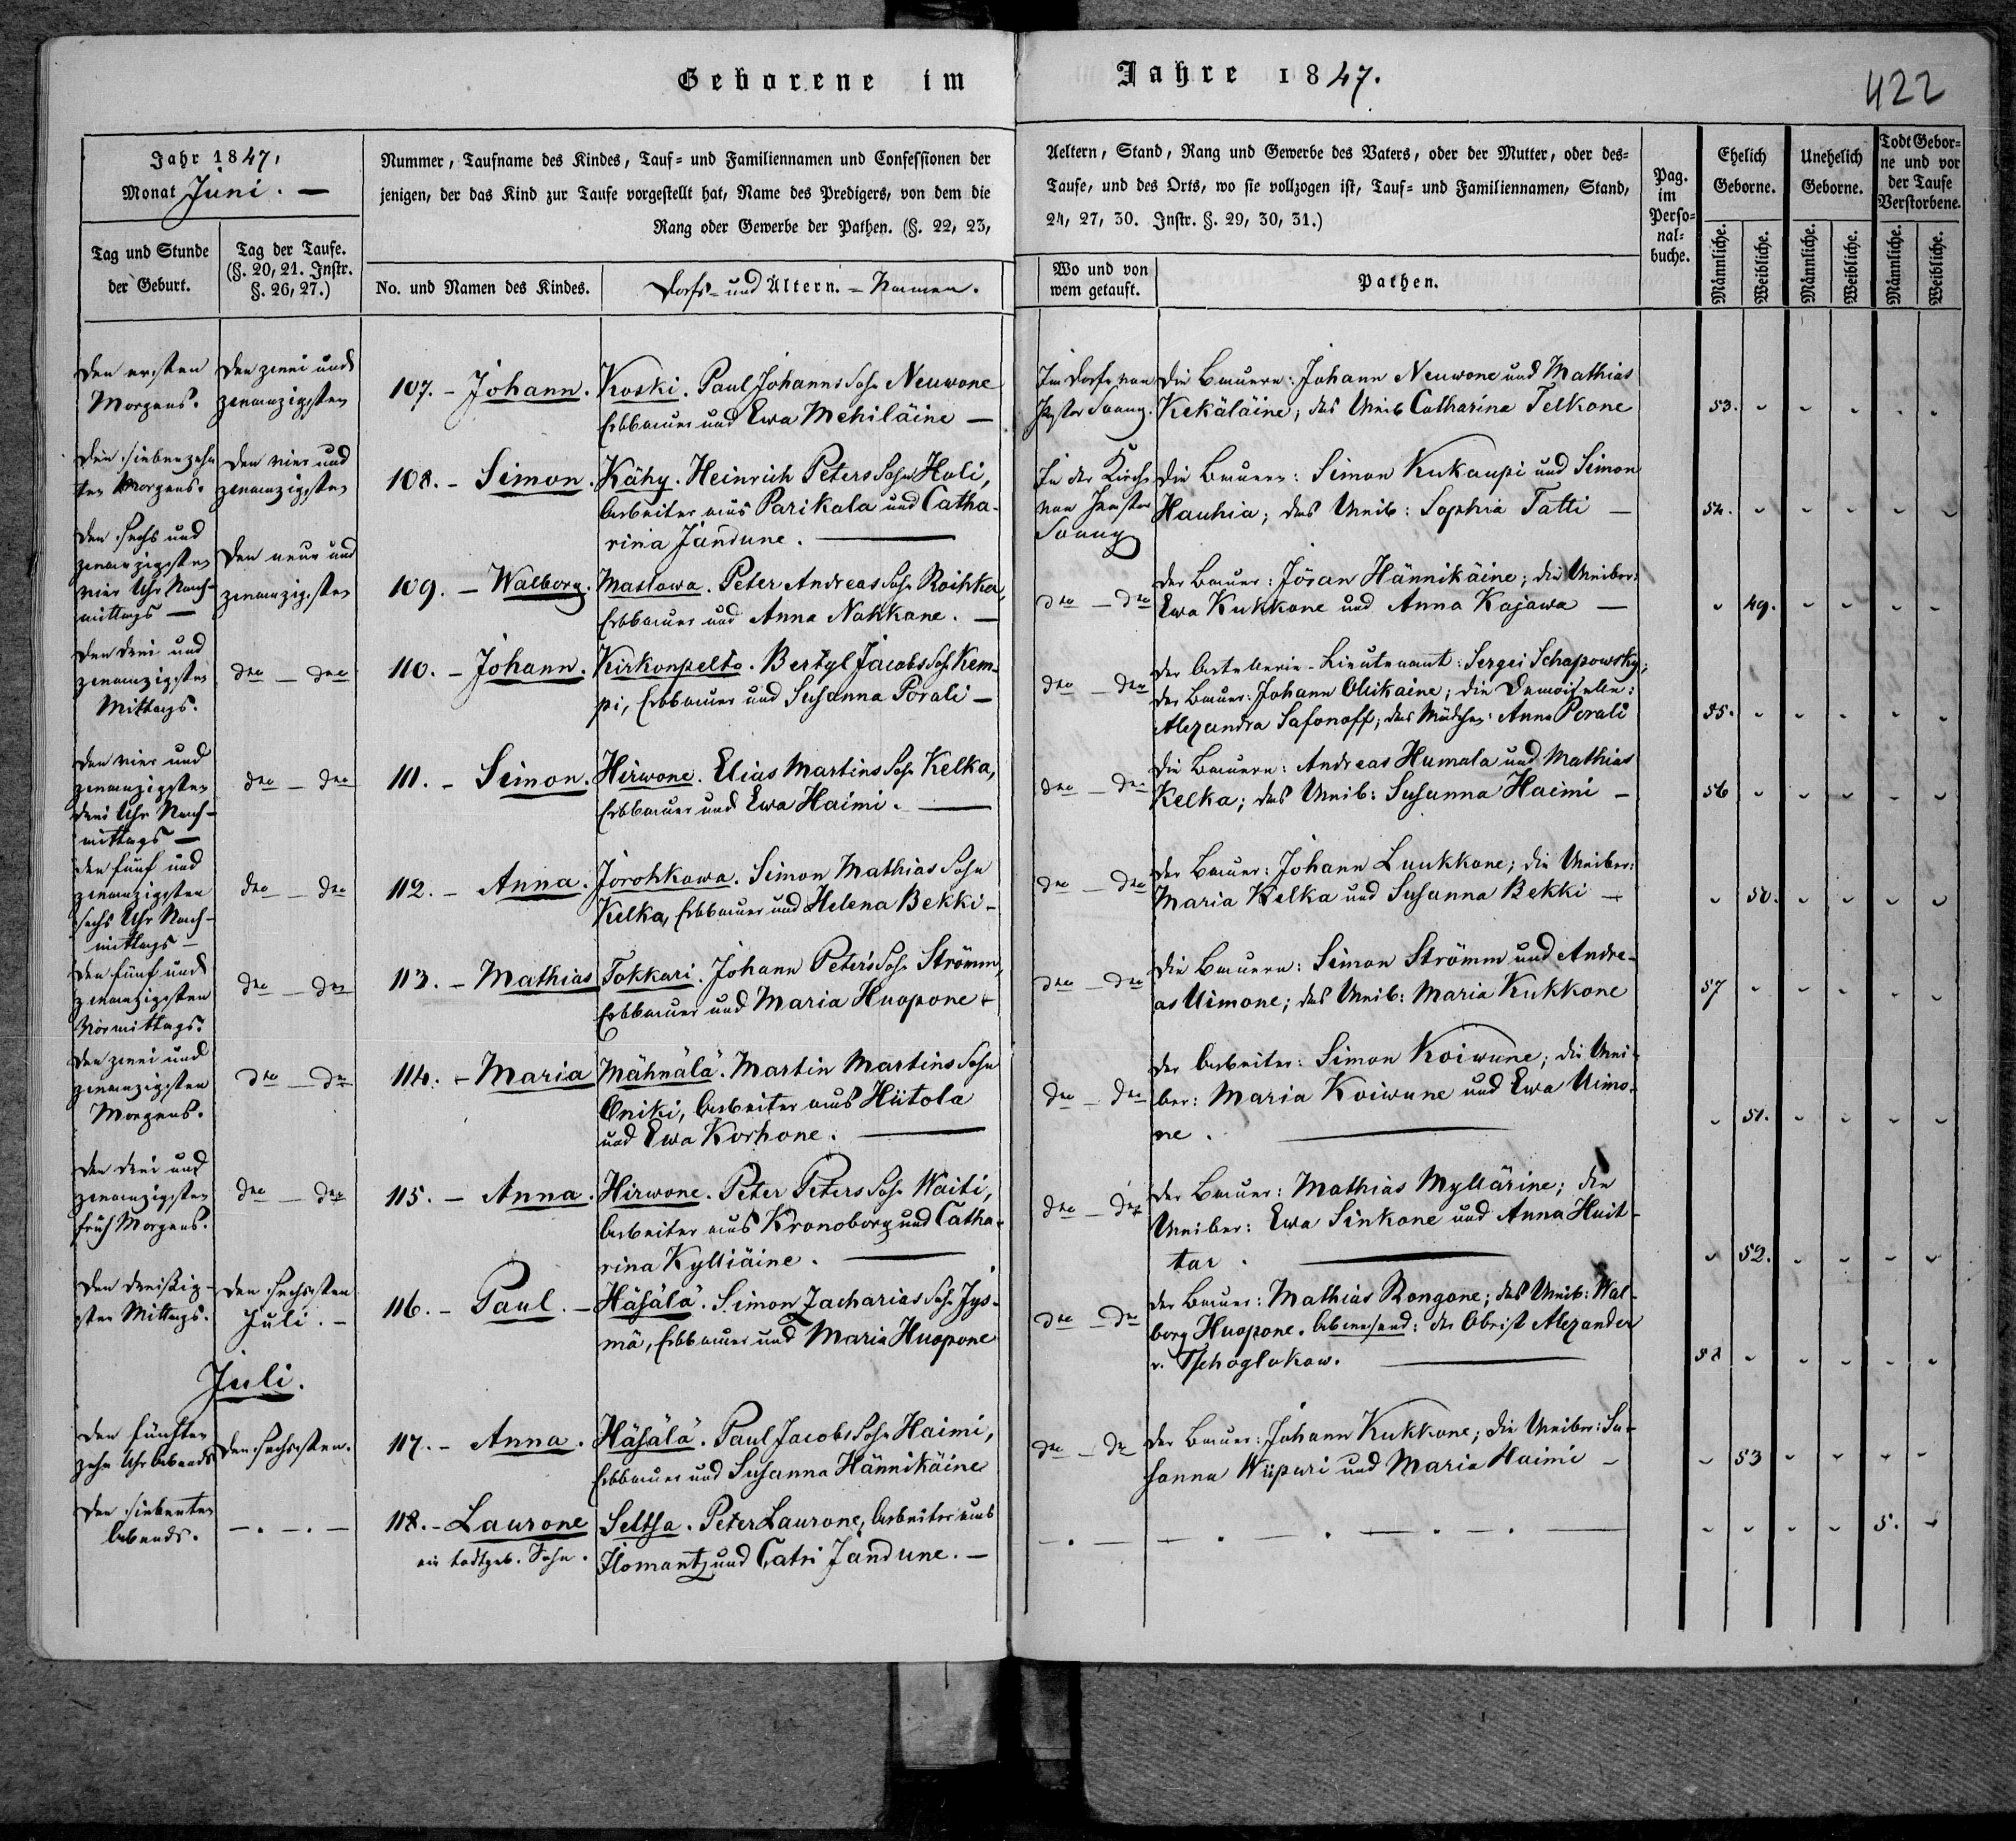 Geborene im Jahre 1847.
422
Jahr 1847,
Monat Juni. —
Tag und Stunde
der Geburt.
Tag der Taufe.
(§. 20, 21. Instr.
§. 26, 27.)
Nummer, Taufname des Kindes, Tauf- und Familiennamen und Confessionen der
jenigen, der das Kind zur Taufe vorgestellt hat, Name des Predigers, von dem die
Rang oder Gewerbe der Pathen. (§. 22, 23,
No. und Namen des Kindes.
Dorfs- und Ältern.-Namen.
Aeltern, Stand, Rang und Gewerbe des Vaters, oder der Mutter, oder des-
Taufe, und des Orts, wo sie vollzogen ist, Tauf- und Familiennamen, Stand,
24, 27, 30. Instr. §. 29, 30, 31.)
Wo und von
wem getauft.
Pathen.
Pag.
im
Perso-
nal-
buche.
Ehelich
Geborne.
Unehelich
Geborne.
Todt Gebor-
ne und vor
der Taufe
Verstorbene.
Männliche.
Weibliche.
Männliche.
Weibliche.
Männliche.
Weibliche.
Den ersten
Morgens.
Den zwei und
zwanzigsten
107. - Johann.
Koski. Paul Johanns Sohn Neuwone
Erbbauer und Ewa Mehiläine —
Im Dorfe von
Pastor
Die Bauern: Johann Neuwone und Mathias
Kekäläine; das Weib Catharina Telkone
53.
Den siebenzehn
ten Morgens.
Den vier und
zwanzigsten
108. - Simon.
Kähy. Heinrich Peters Sohn Holi,
Arbeiter aus Parikala und Catha-
rina Jandune. —
In der Kirche
von Pastor
Die Bauern: Simon Kukaupi und Simon
Hauhia; das Weib: Sophia Tatti —
54.
Den sechs und
zwanzigsten
vier Uhr Nach-
mittags —
Den neun und
zwanzigsten
109. - Walborg.
Maslowa. Peter Andreas Sohn Roihka,
Erbbauer und Anna Nakkane. —
dto — dto
Der Bauer: Jöran Hännikäine; die Weiber:
Ewa Kukkone und Anna Kajawa —
49.
Den drei und
zwanzigsten
Mittags.
dto — dto
110. - Johann.
Kirkonpelto. Bertyl Jacobs Sohn Kem-
pi, Erbbauer und Susanna Porali —
dto — dto
Der Artellerie-Lieutenant: Sergei Schapowsky;
der Bauer: Johann Ollikaine; die Demoiselle:
Alexandra Safonoff; das Mädchen: Anna Porali
55.
Den vier und
zwanzigsten
drei Uhr Nach-
mittags —
dto — dto
111. - Simon.
Hirwone. Elias Martins Sohn Kelka,
Erbbauer und Ewa Haimi. —
dto — dto
Die Bauern: Andreas Humala und Mathias
Kelka; das Weib: Susanna Haimi —
56
Den fünf und
zwanzigsten
sechs Uhr Nach-
mittags —
dto — dto
112. - Anna.
Jorohkawa. Simon Mathias Sohn
Kelka, Erbbauer und Helena Bekki -
dto — dto
Der Bauer: Johann Luukkone; die Weiber:
Maria Kelka und Susanna Bekki —
50.
Den fünf und
zwanzigsten
Vormittags.
dto — dto
113. - Mathias
Tokkari. Johann Peters Sohn Strömm,
Erbbauer und Maria Huopone
dto — dto
Die Bauern: Simon Strömm und Andre-
as Uimone; das Weib: Maria Kukkone
57
Den zwei und
zwanzigsten
Morgens.
dto — dto
114. - Maria
Mähnälä. Martin Martins Sohn
Oniki, Arbeiter aus Hiitola
und Ewa Korhone. —
dto — dto
Der Arbeiter: Simon Koiwune; die Wei-
ber: Maria Koiwune und Ewa Uimo-
ne. —
51.
Den drei und
zwanzigsten
früh Morgens.
dto — dto
115. - Anna.
Hirwone. Peter Peters Sohn Waiti,
Arbeiter aus Kronoborg und Catha-
rina Kylliäine. —
dto — dto
Der Bauer: Mathias Myllärine; die
Weiber: Ewa Sinkone und Anna Huit-
tar. —
52.
Den dreißig-
sten Mittags.
Den sechsten
Juli. —
116. - Paul. -
Häsälä. Simon Zacharias Sohn Jys-
mä, Erbbauer und Maria Huopone
dto — dto
Der Bauer: Mathias Rongone; das Weib: Wal-
borg Huopone. Abwesend: der Obrist Alexander
v. Tschoglokow. —
58
Juli.
Den fünften
zehn Uhr Abends
Den sechsten.
117. - Anna.
Häsälä. Paul Jacobs Sohn Haimi,
Erbbauer und Susanna Hännikäine
dto — dto
Der Bauer: Johann Kukkone; die Weiber: Su-
sanna Wiipuri und Maria Haimi —
53
Den siebenten
Abends.
—.—.—
118. - Laurone
ein todtgeb. Sohn.
Seltsa. Peter Laurone, Arbeiter aus
Ilomantz und Catri Jandune. —
—.—
—.—.—.—.—
5.